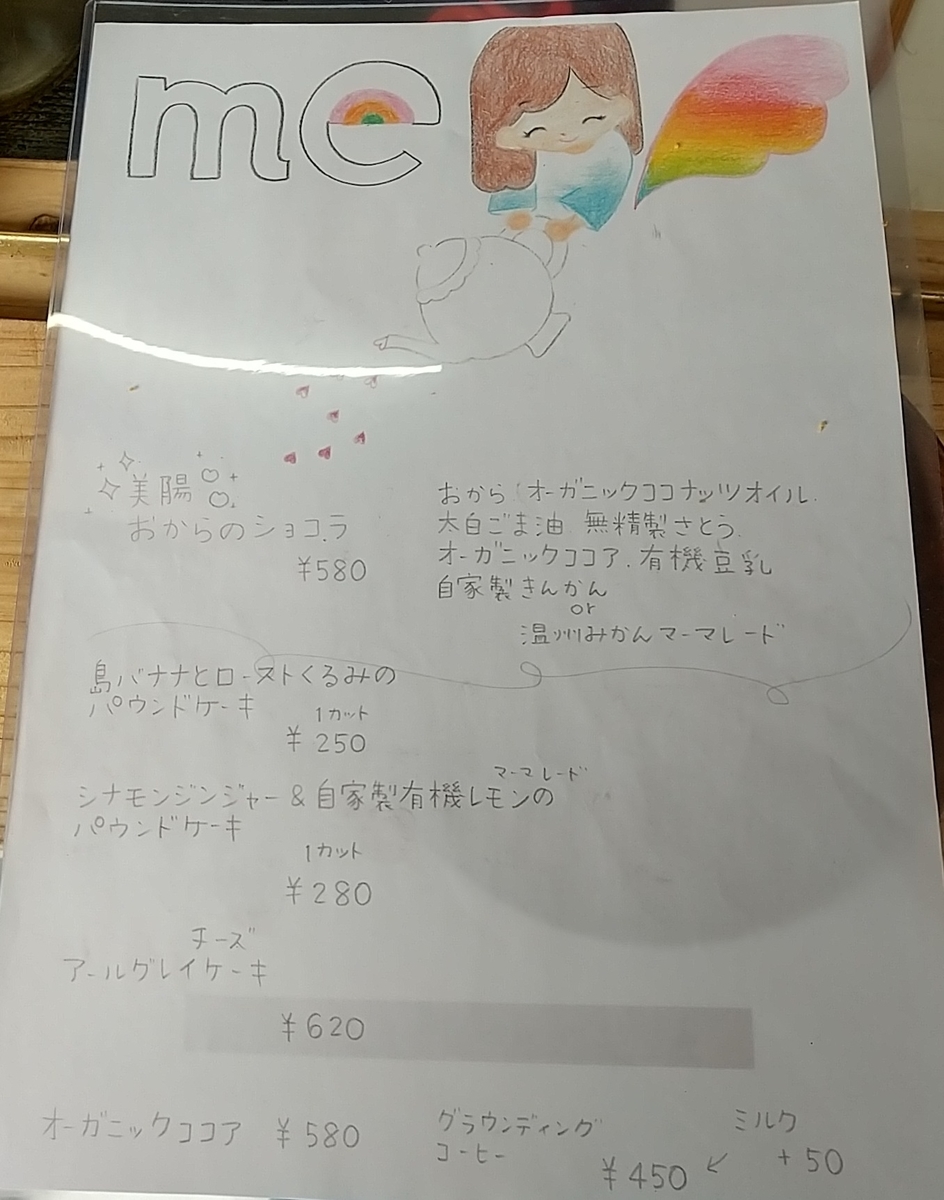 me
美陽
おからのショコラ
¥580
おから(オーガニックココナッツオイル.
太白ごま油.無精製さとう.
オーガニックココア.有機豆乳
自家製きんかん
or
温州みかんマーマレード
島バナナとローストくるみの
パウンドケーキ
1カット
¥250
マーマレード
シナモンジンジャー&自家製有機レモンの
パウンドケーキ
1カット
¥280
チーズ
アールグレイケーキ
¥620
オーガニックココア ¥580
グラウンディング
コーヒー
¥450
ミルク
+50